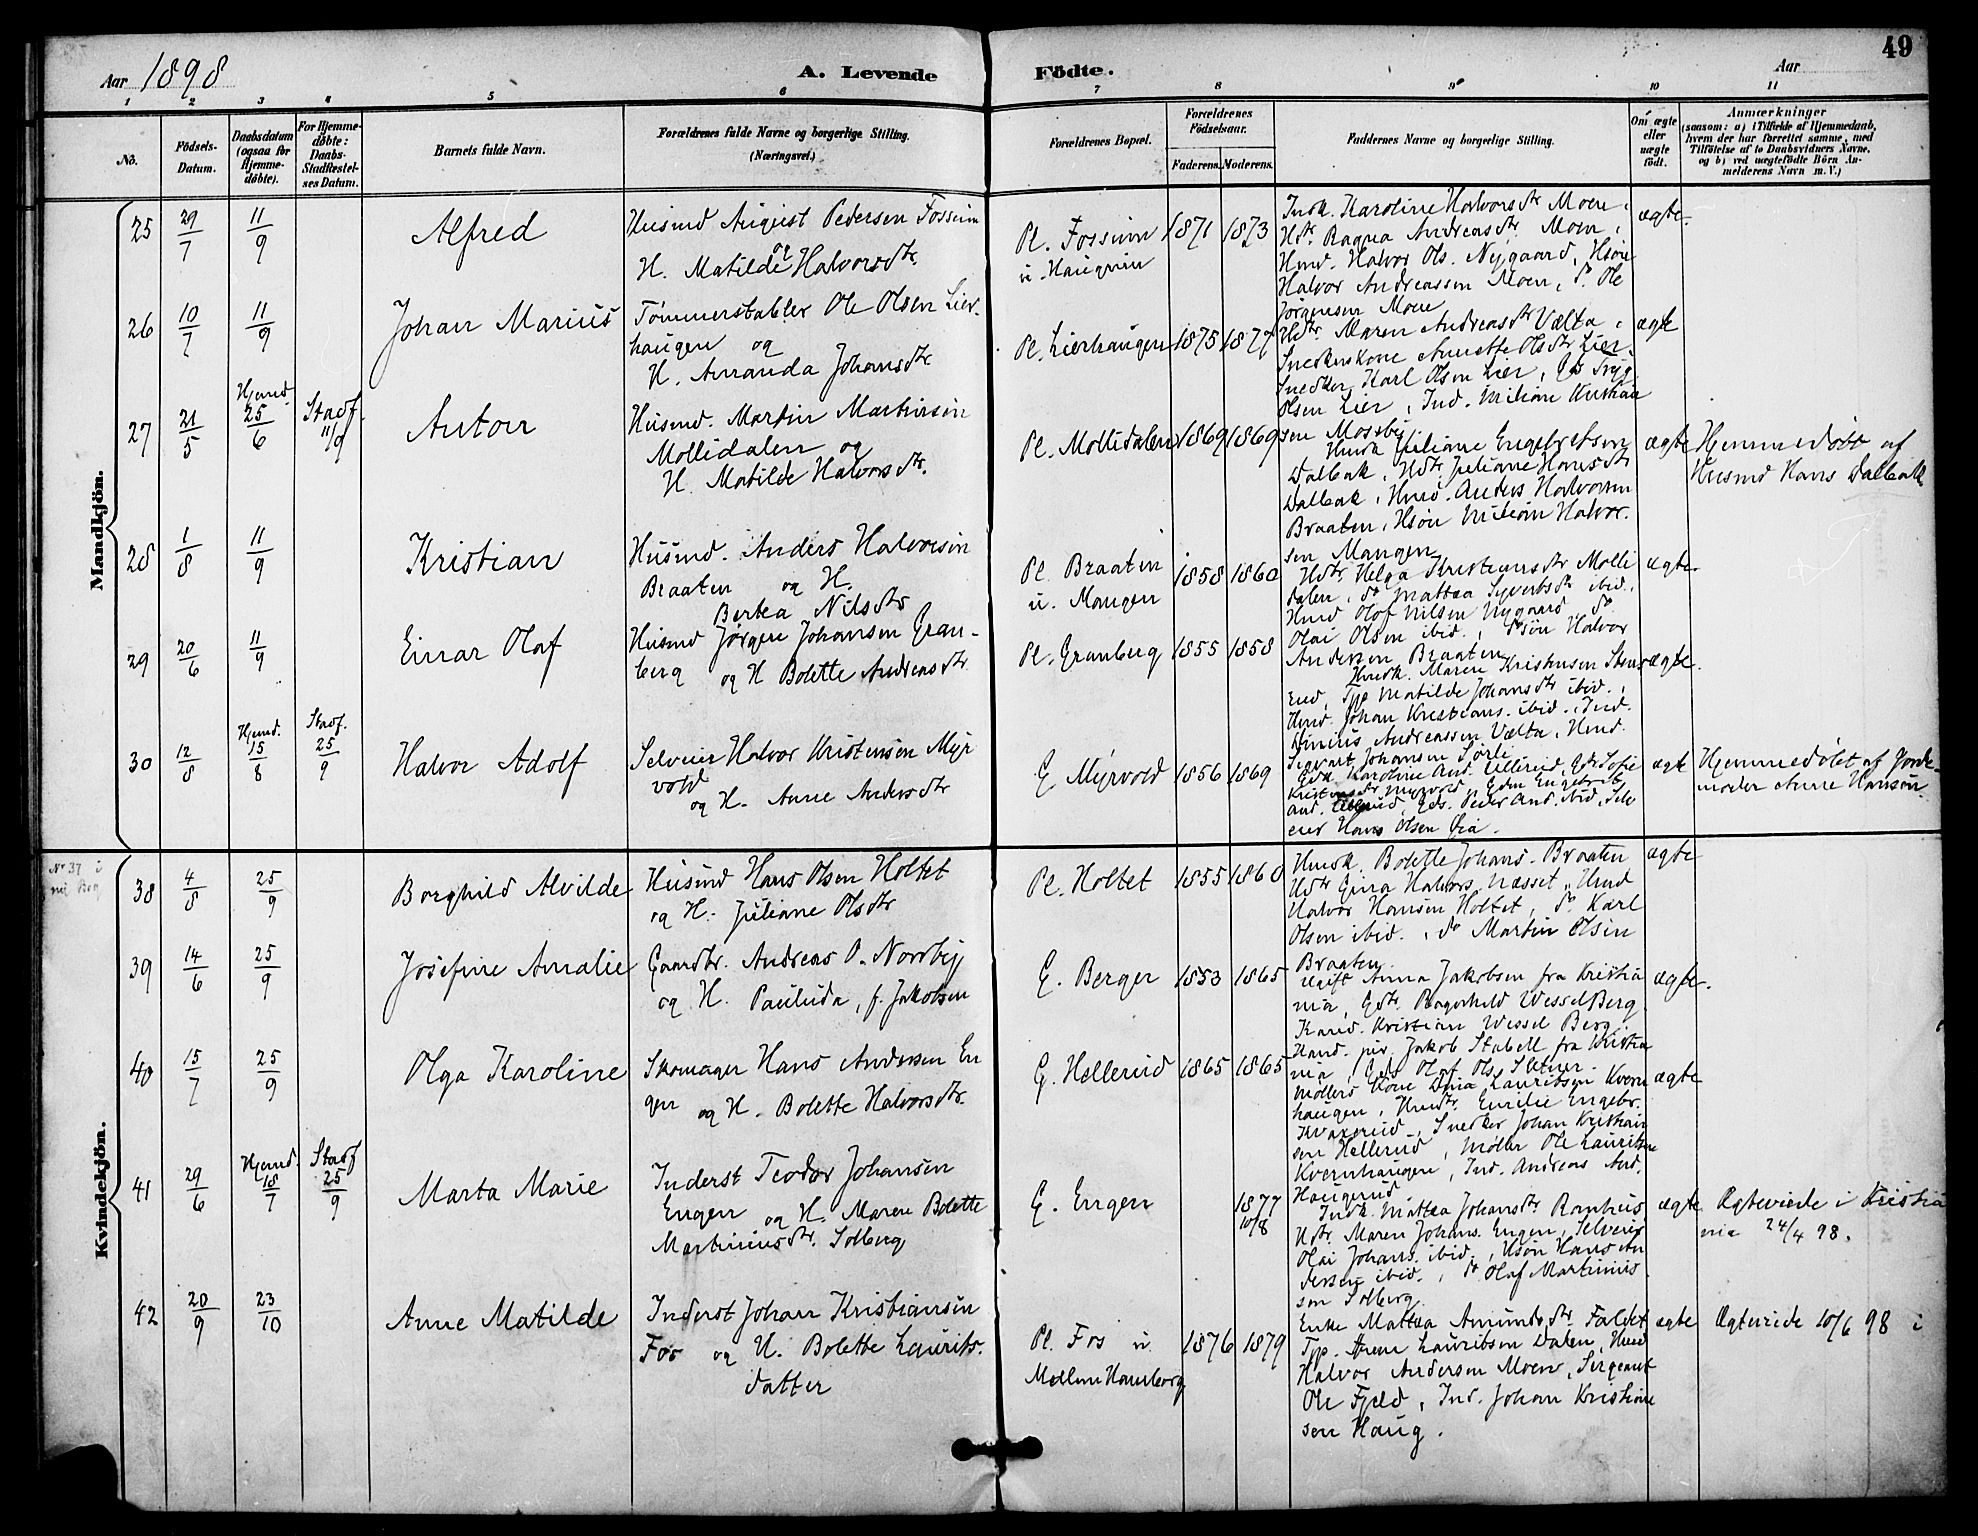 49
Aar 1898
A. Levende Födte.
Aar
1 2 3 4 5 6 7 8 9 10 11
No.
Födsels-Datum.
Daabsdatum (ogsaa for Hjemme-döbte).
For Hjemme-döbte: Daabs-Stadfæstel-ses Datum.
Barnets fulde Navn.
Forældrenes fulde Navne og borgerlige Stilling. (Næringsvei.)
Forældrenes Bopæl.
Forældrenes Födselsaar.
Faderens. Moderens.
Faddernes Navne og borgerlige Stilling.
Om ægte eller uægte födt.
Anmærkninger (saasom: a) i Tilfælde af Hjemmedaab, hvem der har forrettet samme, med Tilföielse af to Daabsvidners Navne, og b) ved uægtefödte Börn An-melderens Navn m. V.)
Mandkjön.
25 29/7 11/9 Alfred
Husmd August Pedersen Fossum
og
H. Matilde Halvorsdtr.
Pl. Fossum
u. Haugrim
1871 1873
Indk. Karoline Halvorsdtr Moen,
Hdtr. Ragna Andreasdtr. Moen,
Hmd. Halvor Ols. Nygaard, Hsön
Halvor Andreassen Moen, do Ole
Jörgensen Moen
ægte.
26 10/7 11/9 Johan Marius
Tømmerstabler Ole Olsen Lier-
haugen og
H. Amanda Johansdtr
Pl. Lierhaugen 1875 1877
Hdtr. Maren Andreasdtr Vælta,
Snedkerkone Annette Olsdtr Lier,
Snedker Karl Olsen Lier, Gds Tryg
Olsen Lier, Ind. Milian Kristian
sen Mossby
ægte
27 21/5 Hjemd. 25/6 Stadf. 11/9 Anton
Husmd. Martin Martinsen
Mollidalen og
H. Matilde Halvorsdtr.
Pl. Mollidalen 1869 1869
Hmdk Juliane Engebretsen
Dalbak, Hdtr Juliane Hansdtr
Dalbak, Hmd. Anders Halvorsen
Braaten, Hsön Milian Halvor-
sen Mangen
ægte
Hjemmedöbt af
Husmd Hans Dalbakk
28 1/8 11/9 Kristian
Husmd. Anders Halvorsen
Braaten og H.
Bertea Nilsdtr
Pl. Braaten
u. Mangen
1858 1860
Hdtr. Helga Kristiansdtr Molli
dalen, do Mattea Syvertsdtr ibid.,
Hmd Olof Nilsen Nygaard, do
Olai Olsen ibid., do sön Halvor
Andersen Braaten
ægte.
29 20/6 11/9 Einar Olaf
Husmd Jörgen Johansen Gran-
berg og H Bolette Andreasdtr
Pl. Granberg 1855 1858
Hmdk. Maren Kristensen Stens
Eid, Tpp Matilde Johansdtr ibid.,
Hmd. Johan Kristians. ibid., Ind.
Andreassen Vælta, Hmd.
Sigvart Johansen Sörli
ægte.
30 12/8 Hjemd. 15/8 Stadf. 25/9 Halvor Adolf
Selveier Halvor Kristensen Myr
vold
og H. Anne Andersdtr
G Myrvold 1856 1869
Gdk Karoline And. Ullerud, Gdtr Sofie
Kristensdtr Myrvold, Gdm Engebret
And. Ullerud, Gds. Peder And. ibid, Selv
eier Hans Olsen Lia.
ægte
Hjemmedöbt af Jorde-
moder Anne Hansen.
Kvindekjön.
No 37 i
38 4/8 25/9 Borghild Alvilde
Husmd Hans Olsen Holtet
og H. Juliane Olsdtr
Pl. Holtet 1855 1860
Hmdk. Bolette Johans. Braaten
Hdtr Gina Halvors. Næsset, Hmd
Halvor Hansen Holtet, do Karl
Olsen ibid., do Martin Olsen
Braaten.
ægte
39 14/6 25/9 Josefine Amalie
Gaardbr. Andreas O. Nordby
og H. Paulida, f. Jakobsen
G. Berger 1853 1865
Ugift Anna Jakobsen fra Kristia
nia, Gdtr. Borghild Wessel Berg,
Kand. Kristian Wessel Berg,
Kand. jur. Jakob Stabell fra Kristia
nia, Gds Olaf Ols.
ægte.
40 15/7 25/9 Olga Karoline
Skomager Hans Andersen En
gen og H. Bolette Halvorsdtr.
G. Hellerud 1865 1865
Möllers Kone Dina Lauritsen Kvern
haugen, Hmdtr Emilie Engebr.
Kvaxerud, Snedker Johan Kristian
sen Hellerud, Möller Ole Lauritsen
Kvernhaugen, Ind. Andreas And.
Haugerud
ægte
41 29/6 Hjemd. 18/7 Stadf 25/9 Marta Marie
Inderst Teodor Johansen
Engen og H. Maren Bolette
Martiniusdtr. Solberg
G. Engen
1877
10/8
Indk. Mattea Johansdtr Romhus
Hdtr Maren Johans. Engen, Selveier
Olai Johans. ibid., Hsön Hans An
dersen ibid., do Olaf Martinius
sen Solberg
ægte
Ægteviede i Kristia
nia 24/4 98.
42 20/9 23/10 Anne Matilde
Inderst Johan Kristiansen
Fos og H. Bolette Laurits-
datter
Pl. Fos u.
Mellem Hamborg
1876 1879
Enke Mattea Amundsdtr Faldet
Tpp. Anne Lauritsen Dalen, Hmd
Halvor Andersen Moen, Sergeant
Ole Fjeld, Ind. Johan Kristian
sen Haug.
ægte
Ægteviede 10/6 98 i